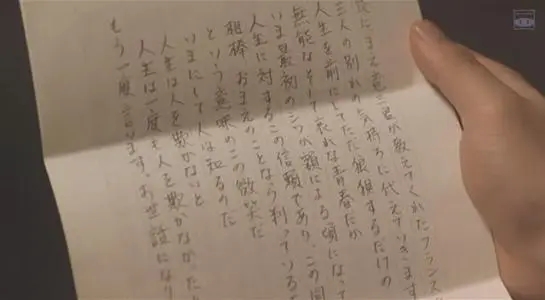 が教えてくれたフランス
三人の別れの気持ちに代えていきます
人生を前にしてただ狼狽するだけの
無能なそして哀れな青春だが
いま最初のシワが額による頃になって
人生に対するこの信頼であり、この同
相棒、おまえのことなら判っている
という意味のこの微笑だ
いまにして人は知るのだ
人生は人を欺かないと
人生は一度も人を欺かなかった
もう一度言います。お世話になり